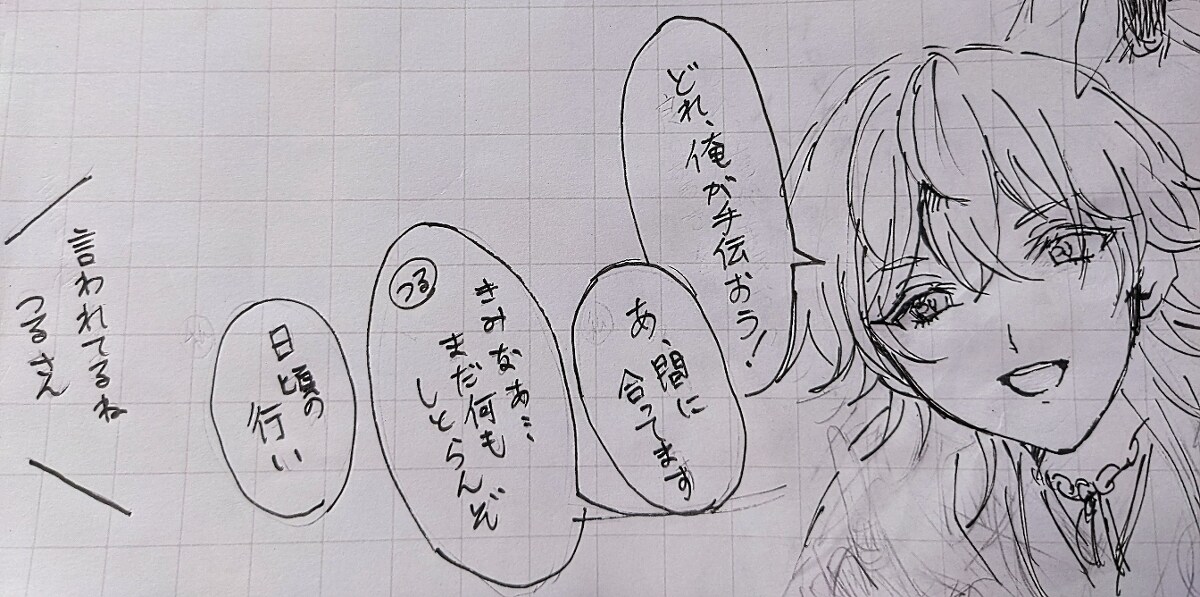 どれ、俺が手伝おう!
あ、間に
合ってます
きみなあ…
まだ何も
しとらんぞ
つる
日頃の
行い
言われてるね
つるさん